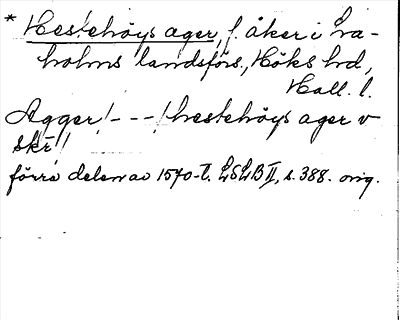 * Hestehöys ager, f. åker i La-
holms landsförs., Höks hd,
Hall. l.
Agger! - - - ! hestehöys ager v
skr!!
förra delen av 1570-t. LSLB II, s. 388. orig.